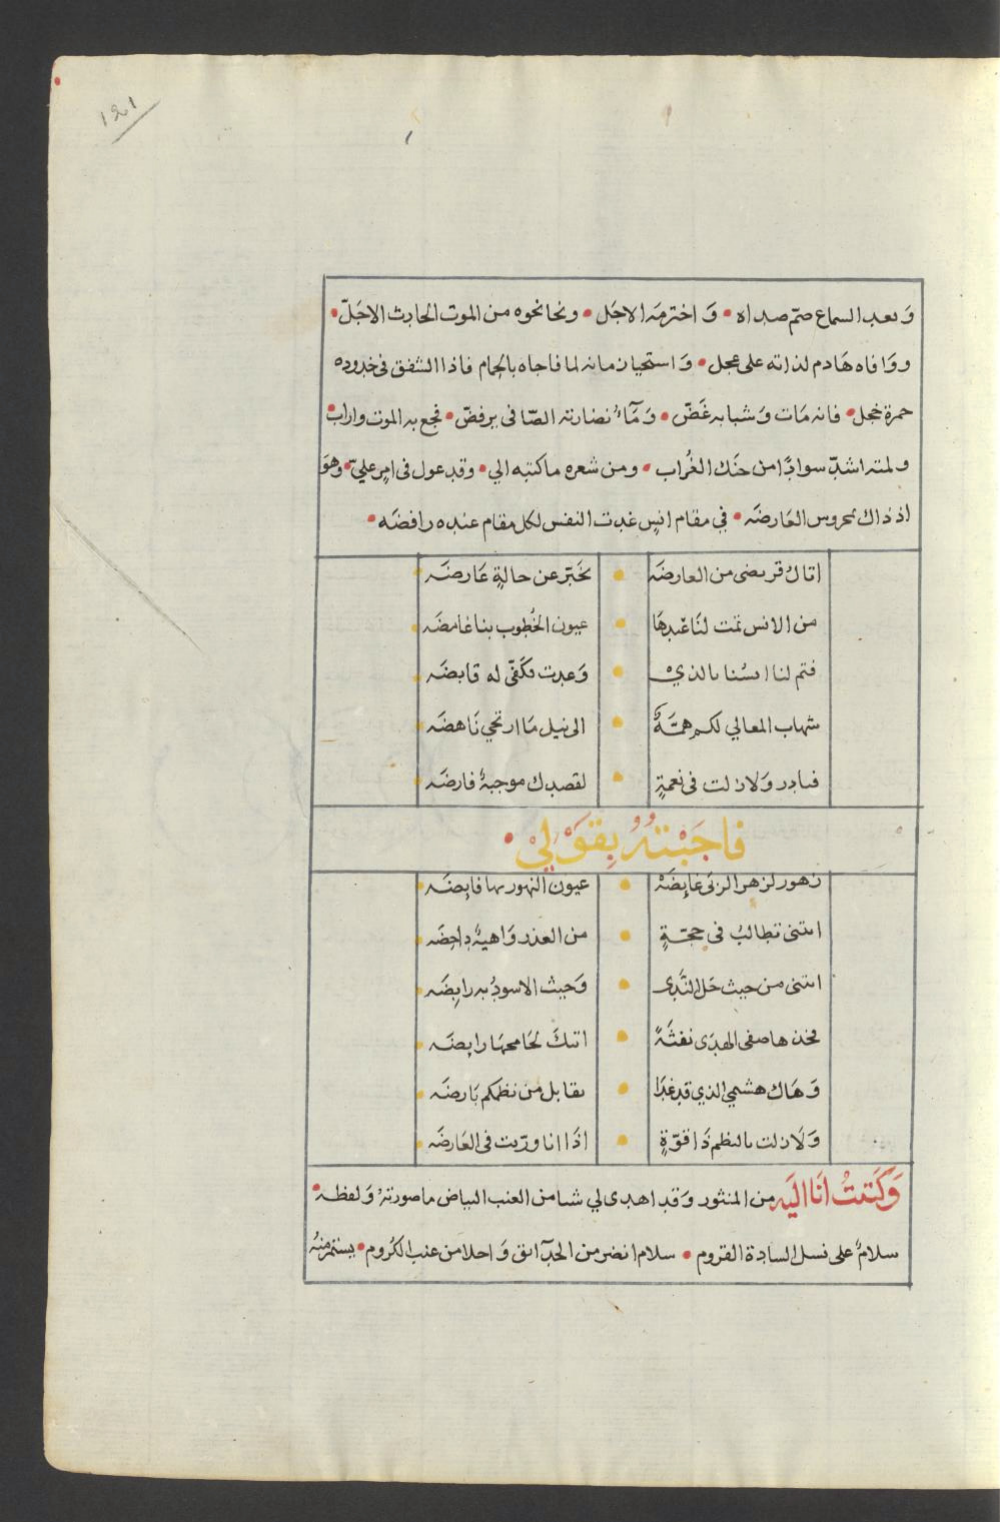 ١٤١
وبعد السماع صمّ صداه • وَاخترمَه الاجَل • ونحا نحوه من الموت الحادث الاجَلّ •
ووَافاه هَادم لذاته على عجل • وَاستحيا زمانه لما فاجاه بالحمام فاذا الشفق فى خدوده
حمرة خجل • فانه مَات وَشبابه غَضّ • وَمَآءُ نضارته الصّافى يرفضّ • فجع به الموت واراب •
ولمته اشدّ سوادًا من حنَك الغُراب • ومن شعره ما كتبه الي • وقد عول فى امرٍ عليّ • وهوَ
اذ ذاك بحروس العَارضَه • في مقام انسٍ غدت النفس لكل مقام عنده رافضَه •
اتاك قريضى من العارضَه • يخَبّر عن حالةٍ عَارضَه
من الانس نمت لنا عندهَا • عيون الخُطوب بنا غامضَه
فتم لنا انسُنا بالذيْ • وَعدت فكَفّى له قابضَه
شهاب المعالي لكم همّةٌ • الى نيل مَا ارتجي نَاهضَه
فبادر وَلا زلت فى نعمةٍ • لقصدك موجبةٌ فارضَه
فاجَبْتهُ بِقَوْليْ •
زهور لزهر الربى غايضَهْ • عيون النهور بها فايضَه
اتتنى تطالبُ فى حجّةٍ • من العذر وَاهيةٌ داحضَه
اتتنى من حيث حَل النَّدى • وَحيث الاسودُ به رابِضَه
فخذها صفى الهدَى نفثَةً • اتتكَ لجَامحهَا رايضَه
وَهَاك هشيمي الذي قد غدَا • يقابل من نظمكم بَارضَه
وَلَا زلت بالنظم ذَا قوّةٍ • اذَا انا ورّيت فى العَارضَه
وَكَتبْتُ انَا اليَه من المنثور وَقد اهدى لي شيا من العنب البياض ما صورتهُ وَلفظه •
سلامٌ على نسل السادة القروم • سلام انضر من الحدآئق وَاحلا من عنب الكرُوم • يستثمر منهُ